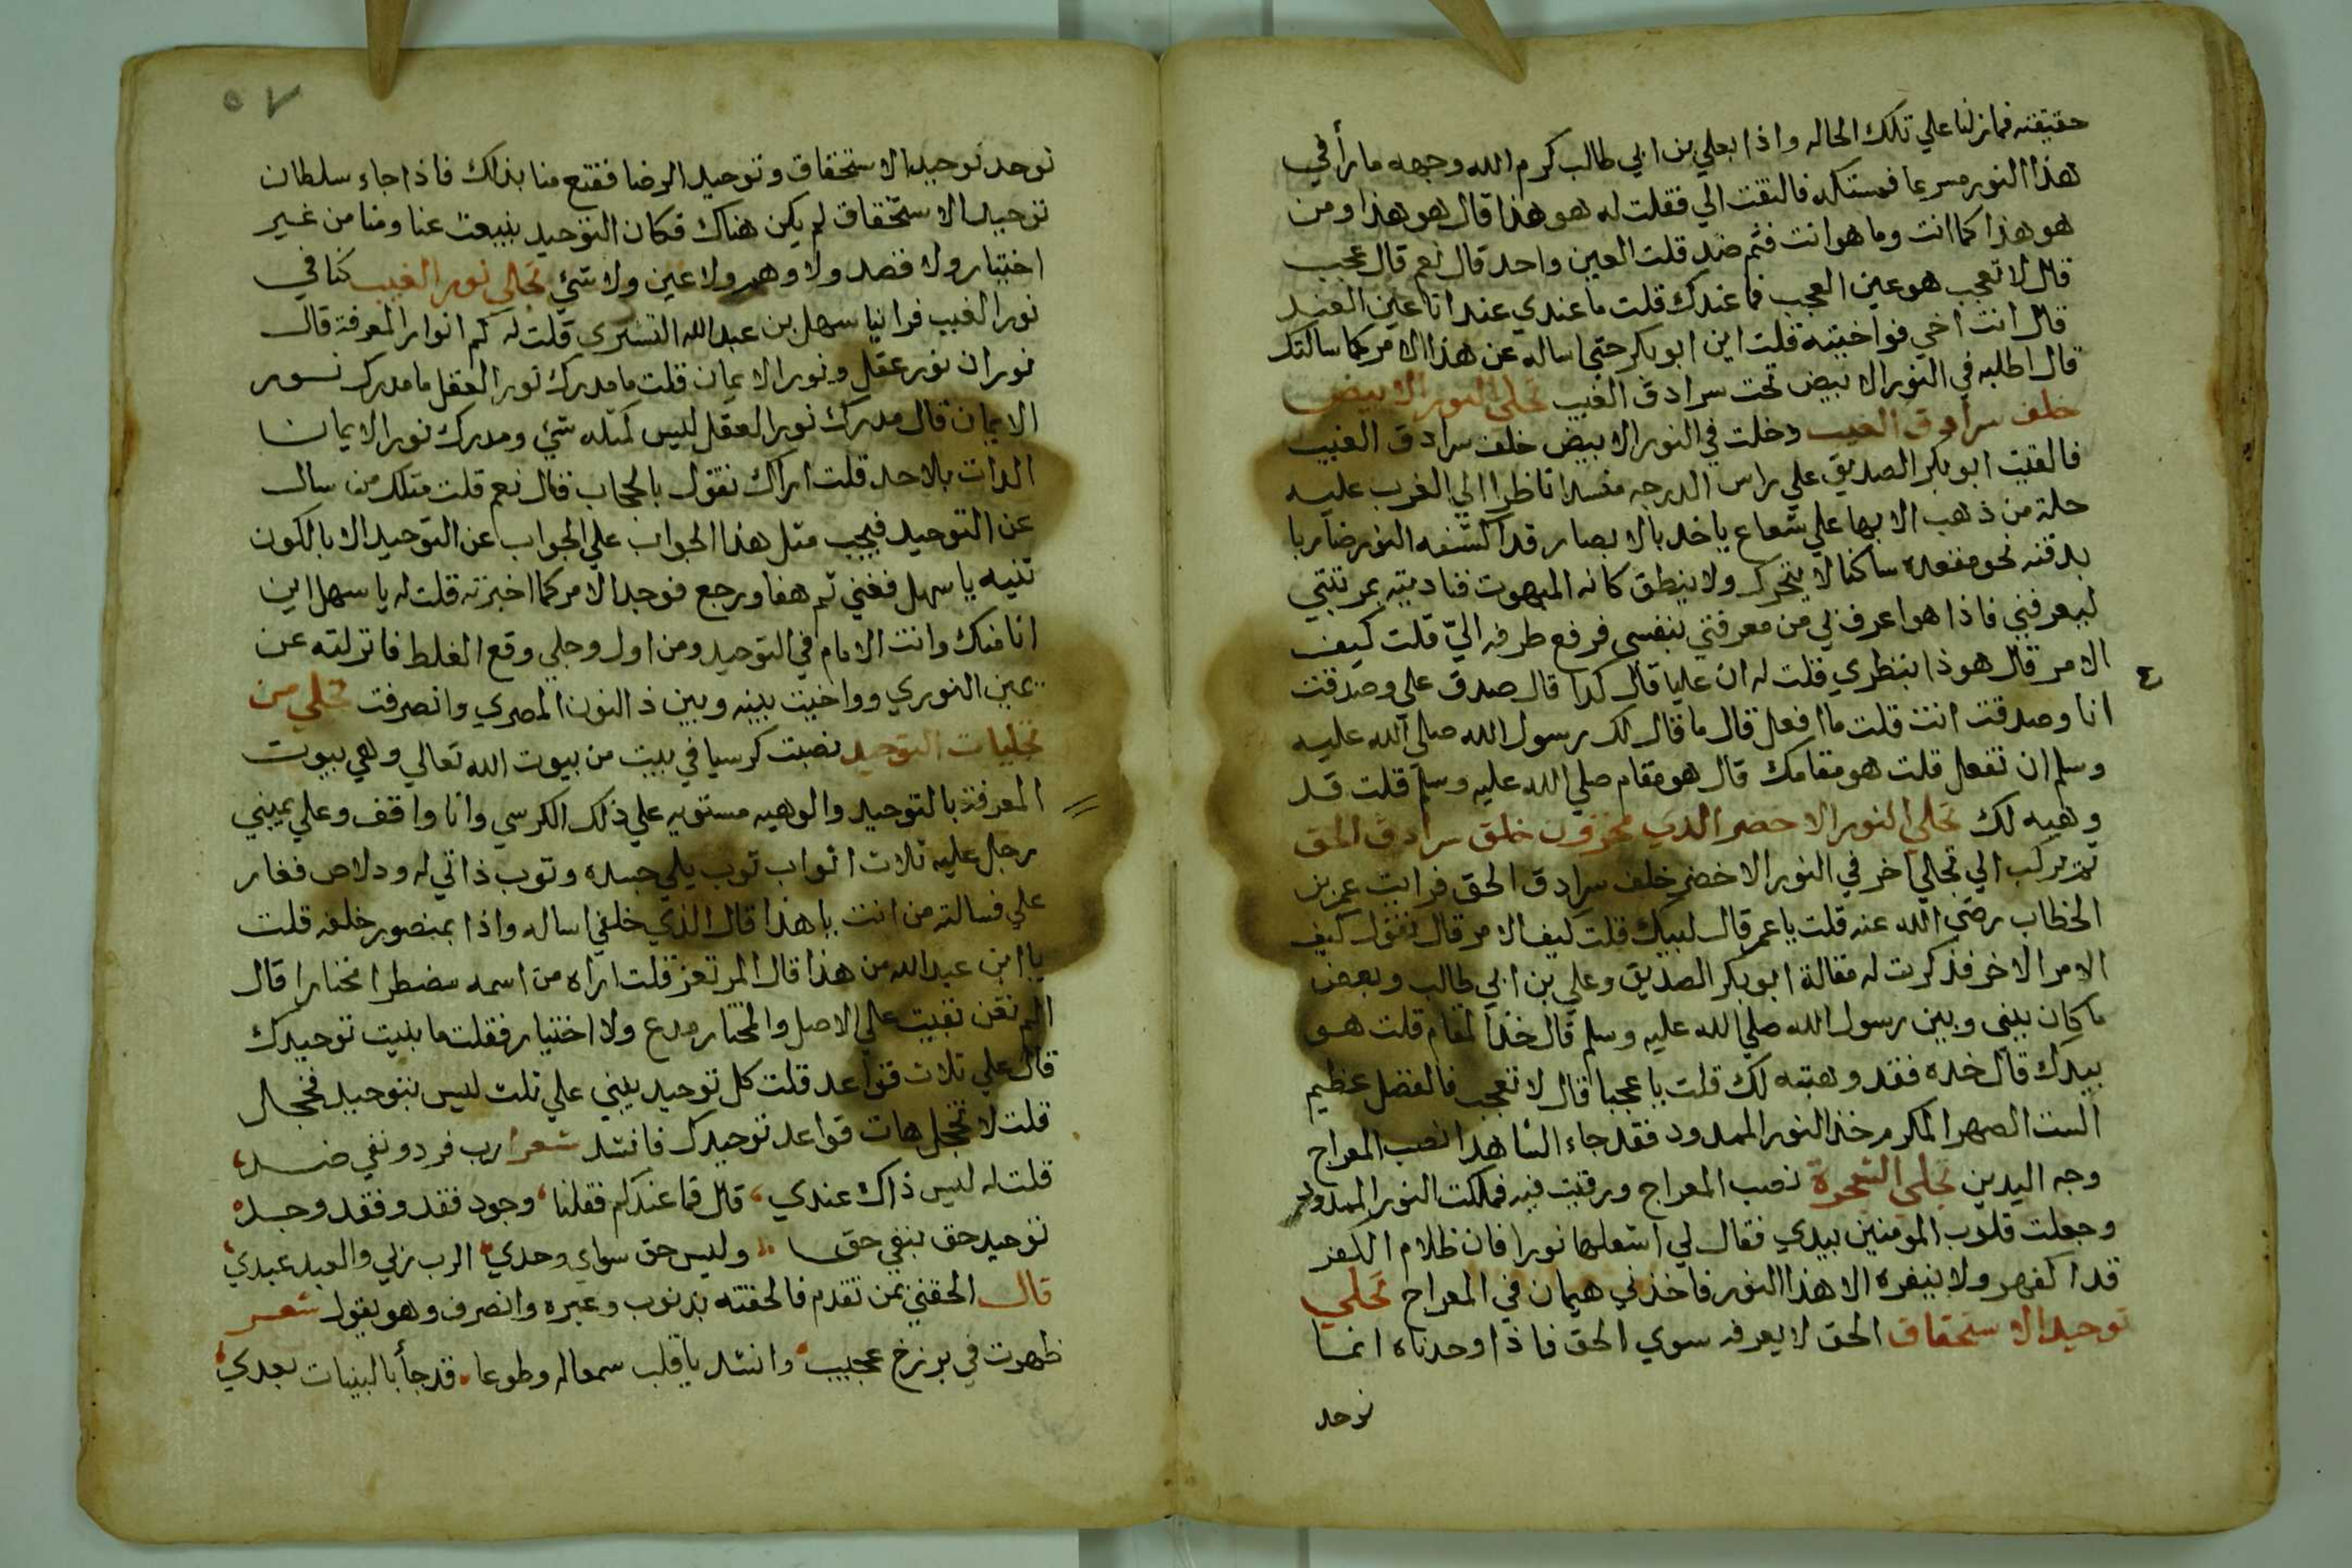 حقيقته فما زلنا علي تلك الحاله واذا بعلي بن ابي طالب كرم الله وجهه مارا في
هذا النور مسرعا فمسكته فالتفت الي فقلت له هو هذا قال هو هذا ومن
هو هذا كما انت وما هو انت فثم ضد قلت العين واحد قال نعم قال عجب
قال لا تعجب هو عين العجب فما عندك قلت ما عندي عند انا عين العند
قال انت اخي فواخيته قلت اين ابو بكر حتي اساله عن هذا الامر كما سالتك
قال اطلبه في النور الابيض تحت سرادق الغيب تجلي النور الابيض
خلف سرادق الغيب دخلت في النور الابيض خلف سرادق الغيب
فالفيت ابو بكر الصديق علي راس الدرجه ناظرا الي الغرب عليه
حلة من ذهب الابها علي شعاع ياخد بالابصار قد اكتنفه النور ضاربا
بدقنه نحو مقعده ساكنا لا يتحرك ولا ينطق كانه المبهوت فناديته بمرتبتي
ليعرفني فاذا هو اعرف بي من معرفتي بنفسي فرفع طرفه الي قلت كيف
الامر قال هو ذا ينظري قلت له ان عليا قال كدا قال صدق علي وصدقت
انا وصدقت انت قلت ما افعل قال ما قال لك رسول الله صلي الله عليه
وسلم ان تفعل قلت هو مقامك قال هو مقام صلي الله عليه وسلم قلت قد
وهبه لك تجلي النور الاخضر الدي خلق سرادق الحق
ثم نركب الي تجلي اخر في النور الاخضر خلف سرادق الحق فرايت عمر بن
الخطاب رضي الله عنه قلت يا عمر قال لبيك قلت كيف الامر قال تقول كيف
الامر الاخر فذكرت له مقالة ابو بكر الصديق وعلي بن ابي طالب وبعض
ما كان بيني وبين رسول الله صلي الله عليه وسلم قال خذ المقام قلت هو
بيدك قال خده فقد وهبته لك قلت يا عجبا قال لا تعجب فالفضل عظيم
الست الصهر المكرم خذ النور الممدود فقد جاء الشاهد انصب المعراج
وجه اليدين تجلي الشجرة نصب المعراج ورقيت فيه فملكت النور الممدود
وجعلت قلوب المومنين بيدي فقال لي اشعلها نورا فان ظلام الكفر
قد اكفهر ولا ينفره الا هذا النور فاخذني هيمان في المعراج تجلي
توحيد الاستحقاق الحق لا يعرفه سوي الحق فاذا وحدناه انما
نوحد
٥٧
نوحد توحيد الاستحقاق وتوحيد الرضا فقتع منا بذلك فاذا جاء سلطان
توحيد الاستحقاق لم يكن هناك فكان التوحيد ينبعث عنا ومنا من غير
اختيار ولا قصد ولا وهم ولا عين ولا شئ تجلي نور الغيب كنا في
نور الغيب فراينا سهل بن عبد الله التستري قلت له كم انوار المعرفة قال
نوران نور عقل ونور الايمان قلت ما مدرك نور العقل ما مدرك نور
الايمان قال مدرك نور العقل ليس كمثله شئ ومدرك نور الايمان
الدات بلا حد قلت اراك تقول بالحجاب قال نعم قلت مثلك من سال
عن التوحيد فيجب مثل هذا الجواب علي الجواب عن التوحيد الا بالكون
تنبه يا سهل ففني ثم هفا ورجع فوجد الامر كما اخبرته قلت له يا سهل اين
انا منك وانت الامام في التوحيد ومن اول وجلي وقع الغلط فانزلته عن
يمين النوري وواخيت بينه وبين ذ النون المصري وانصرفت تجلي من
تجليات التوحيد نصبت كرسيا في بيت من بيوت الله تعالي وهي بيوت
المعرفة بالتوحيد والوهيه مستويه علي ذلك الكرسي وانا واقف وعلي يميني
رجل عليه ثلاث اثواب ثوب يلي جسده وثوب ذاتي له ودلاص فغار
علي فسالته من انت يا هذا قال الذي خلفي اساله واذا بمنصور خلفه قلت
يا ابن عبد الله من هذا قال المرتعز قلت اراه من اسمه مضطرا مختارا قال
بقيت علي الاصل والمختار مدع ولا اختيار فقلت ما بنيت توحيدك
قال علي ثلاث قواعد قلت كل توحيد يبني علي ثلث ليس بتوحيد فخجل
قلت لا تخجل هات قواعد توحيدك فانشد شعرا رب فرد ونفي ضد
قلت له ليس ذاك عندي، قال فما عندكم فقلنا، وجود فقد وفقد وجد
توحيد حق بنفي حق وليس حق سواي وحدي الرب ربي والعبد عبدي
قال الحقني بمن تقدم فالحقته بدنوب وعبره وانصرف وهو يقول شعر
ظهرت في برزخ عجيب وانشد يا قلب سمعا له وطوعا، قد جا بالبينات بعدي